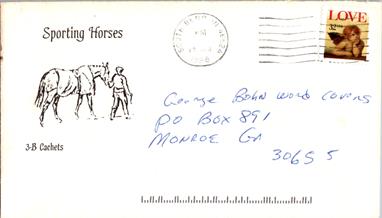 Sporting Horses
3-B Cachets
PM
1996
LOVE
32
George Bohn word covers
PO Box 891
Monroe Ga
30655